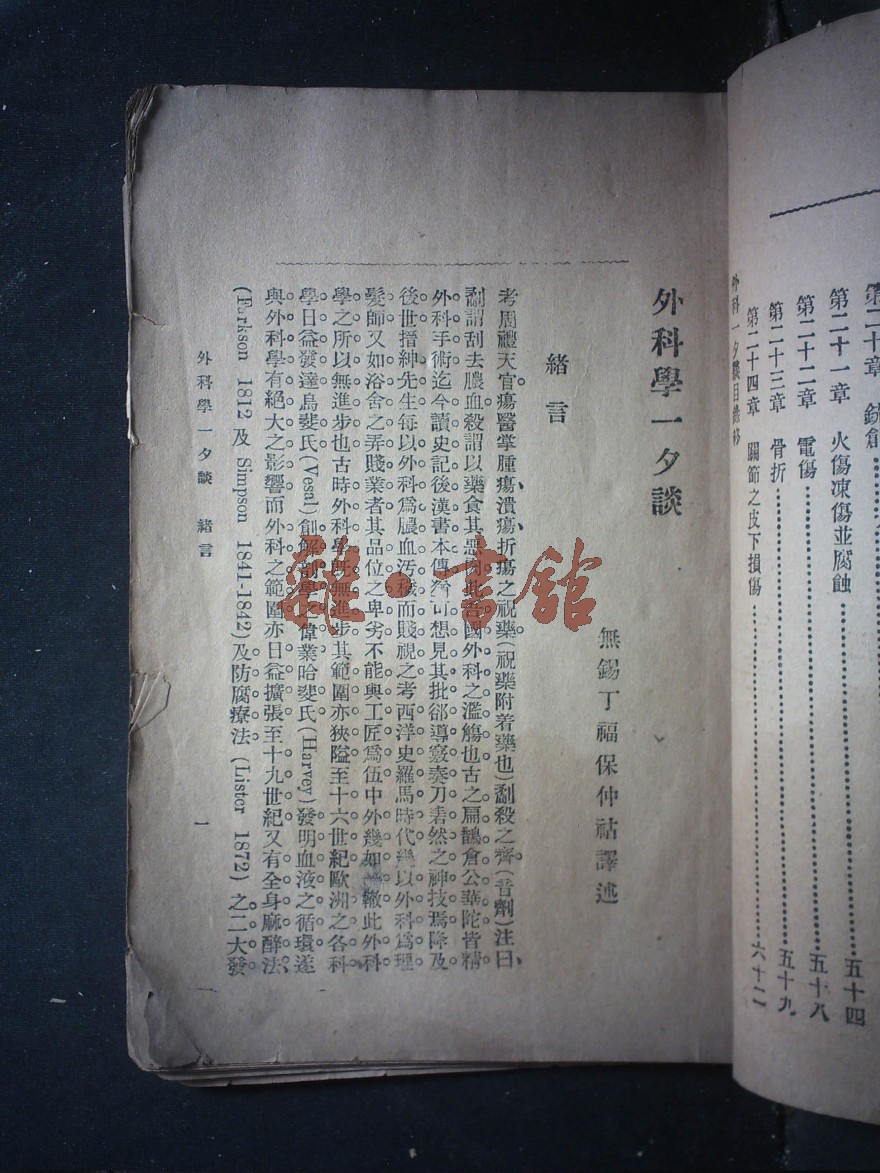 第二十章 銃創
第二十一章 火傷凍傷並腐蝕……五十四
第二十二章 電傷……五十八
第二十三章 骨折……五十九
第二十四章 關節之皮下損傷……六十二
外科一夕談目錄終
外科學一夕談
無錫丁福保仲祜譯述
緒言
考周禮天官瘍醫掌腫瘍潰瘍折瘍之祝藥(祝藥附着藥也)劀殺之齊(音劑)注曰
劀謂刮去膿血殺謂以藥食其惡肉此吾國外科之濫觴也古之扁鵲倉公華陀皆精
外科手術迄今讀史記後漢書本傳猶可想見其批郤導竅奏刀砉然之神技焉降及
後世搢紳先生每以外科爲膿血汚穢而賤視之考西洋史羅馬時代幾以外科爲理
髮師又如浴舍之弄賤業者其品位之卑劣不能與工匠爲伍中外幾如一轍此外科
學之所以無進步也古時外科學既無進步其範圍亦狹隘至十六世紀歐洲之各科
學日益發達烏斐氏(Vesal)創解剖學之偉業哈斐氏(Harvey)發明血液之循環遂
與外科學有絕大之影響而外科之範圍亦日益擴張至十九世紀又有全身麻醉法
(Farkson 1812及Simpson 1841-1842)及防腐療法(Lister 1872)之二大發
外科學一夕談 緒言
一
一
雜·書館